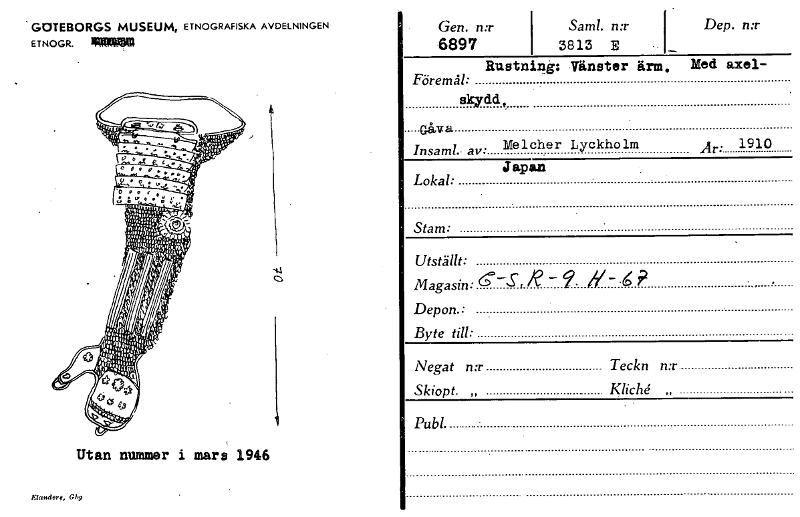 GÖTEBORGS MUSEUM, ETNOGRAFISKA AVDELNINGEN
ETNOGR.
70
Utan nummer i mars 1946
Elanders, Gbg
Gen. n:r Saml. n:r Dep. n:r
6897 3813 E
Föremål: Rustning: Vänster ärm. Med axel-
skydd.
Gåva
Insaml. av: Melcher Lyckholm Ar: 1910
Lokal: Japan
Stam:
Utställt:
Magasin: G-S.R-9. H-67
Depon.:
Byte till:
Negat n:r Teckn n:r
Skiopt. „ Kliché „
Publ.